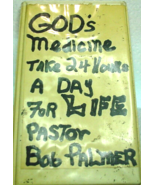 GOD's
Medicine
Take 24 Hours
A DAY
FOR LIFE
PASTOR
Bob PALMER